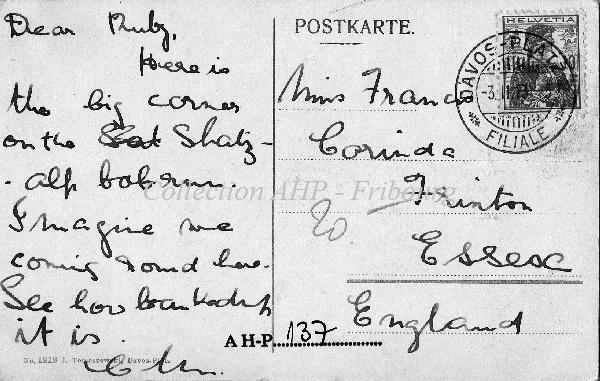 Dear Ruby,
Here is
the big corner
on the Shatz-
-alp bobrun.
Imagine me
coming round here.
See how banked up
it is.
No. 1819 J. Davos-Platz.
POSTKARTE.
HELVETIA
10
DAVOS-PLATZ
FILIALE
Miss Francis
Corinda
Frinton
Essex
England
20.
AH-P 137
Collection AHP - Fribourg